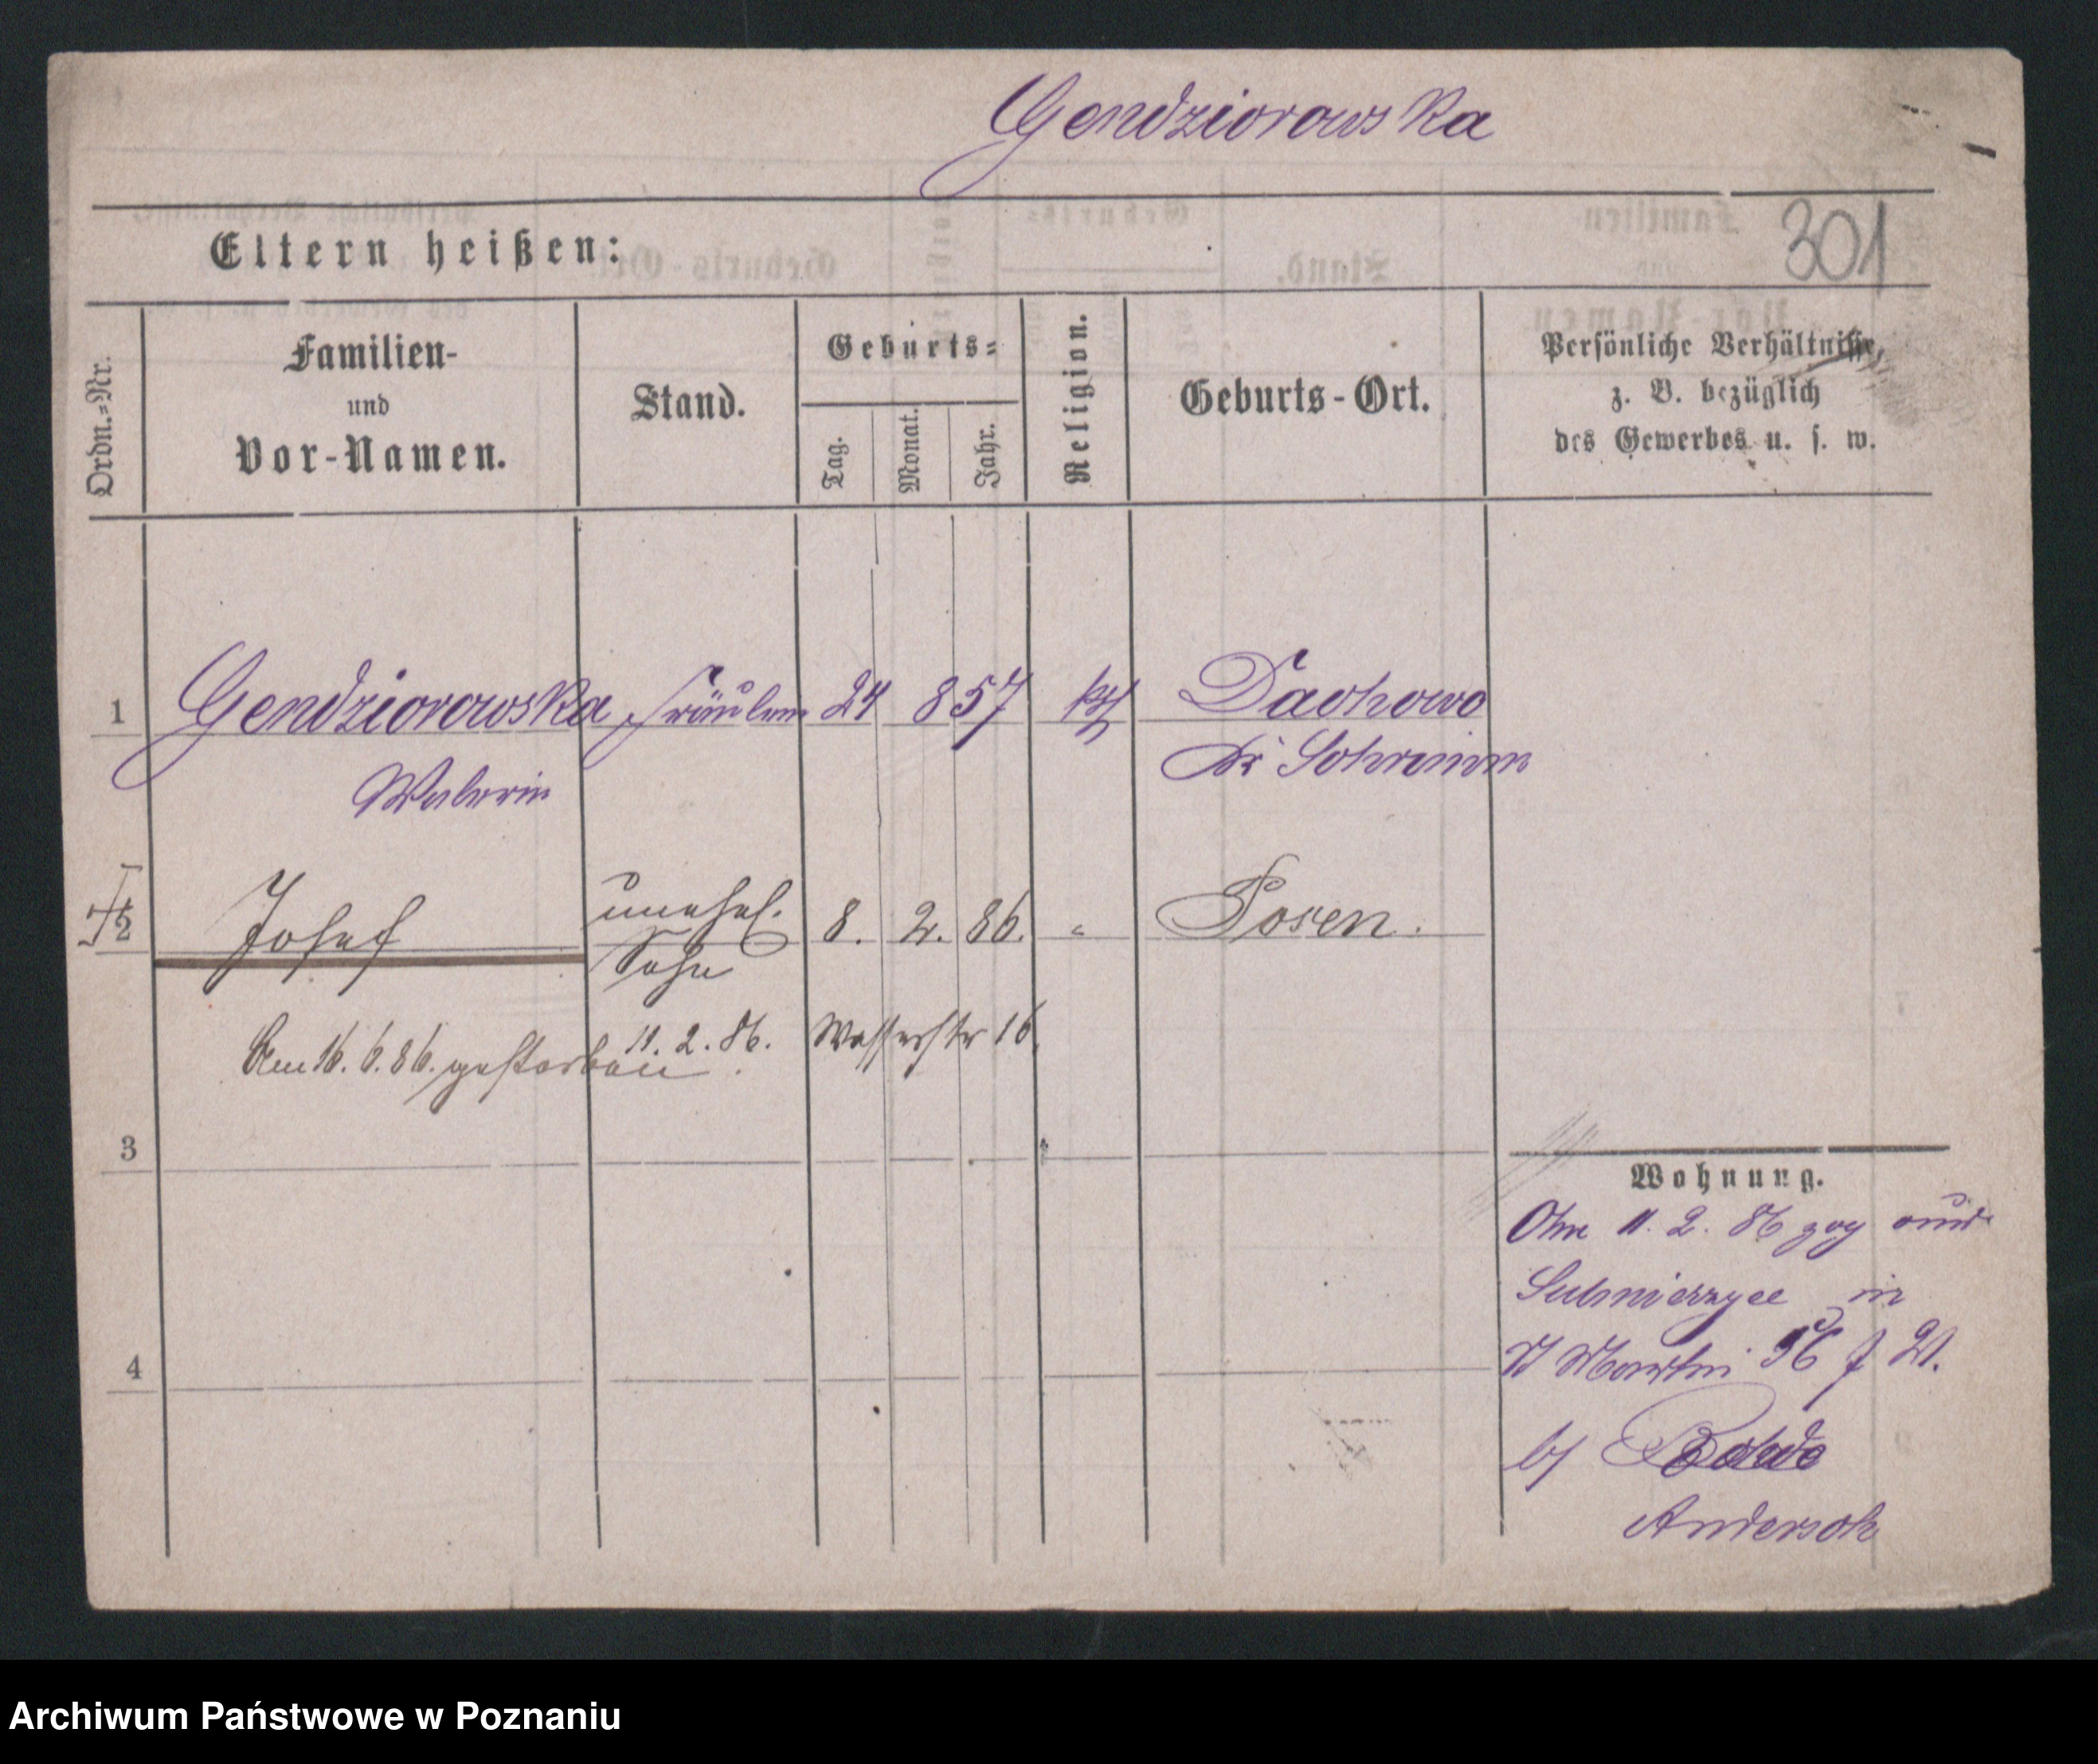 Gendziorowska
301
Eltern heißen:
Ordn.=Nr.
Familien-
und
Vor-Namen.
Stand.
Geburts=
Tag.
Monat.
Jahr.
Religion.
Geburts-Ort.
Persönliche Verhältnisse,
z. B. bezüglich
des Gewerbes u. s. w.
1 Gendziorowska Fräulein 24 8 57 kth Dachowo
Kr Schrimm
Valerie
2 Josef unehel. 8. 2. 86. " Posen.
Sohn
11. 2. 86. Wasserstr 16.
Am 16. 6. 86. gestorben.
3
Wohnung.
11. 2. 86 zog aus
in
St Martin 56
4
b/
Andersch
Archiwum Państwowe w Poznaniu